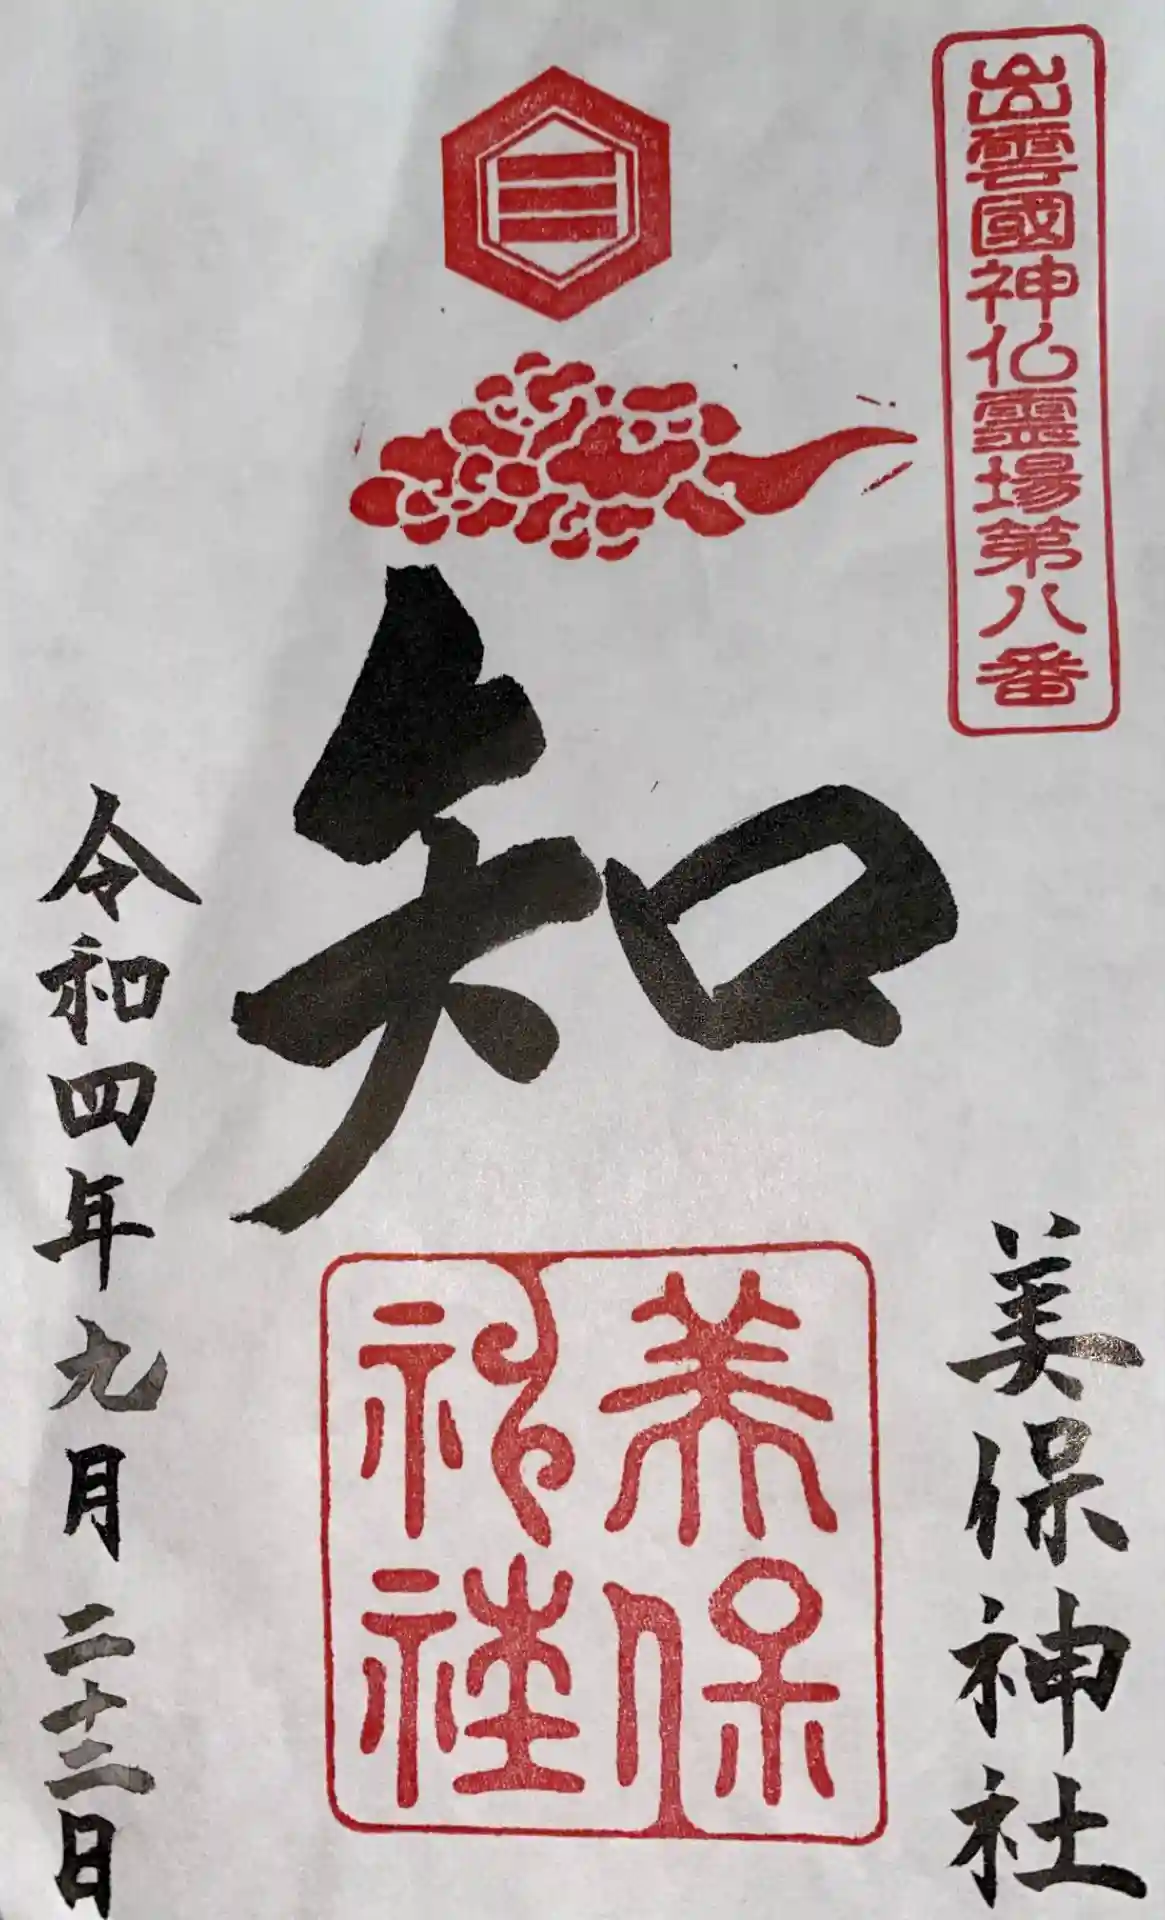 出雲國神仏霊場第八番
知
美保神社
美保神社
令和四年九月二十二日